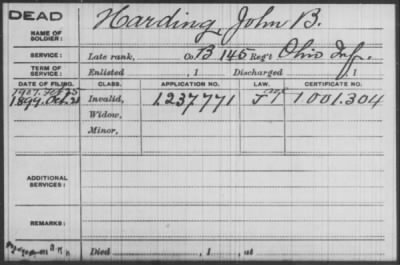 DEAD
NAME OF SOLDIER: Harding, John B.
SERVICE: Late rank, Co. B 145 Reg't Ohio Inf.
TERM OF SERVICE: Enlisted , 1 Discharged , 1
DATE OF FILING. CLASS. APPLICATION NO. LAW. CERTIFICATE NO.
1907. Feb 25
1899. Oct. 21 Invalid, 1.237.771 1001.304
Widow,
Minor,
ADDITIONAL SERVICES:
REMARKS:
Died , 1 , at